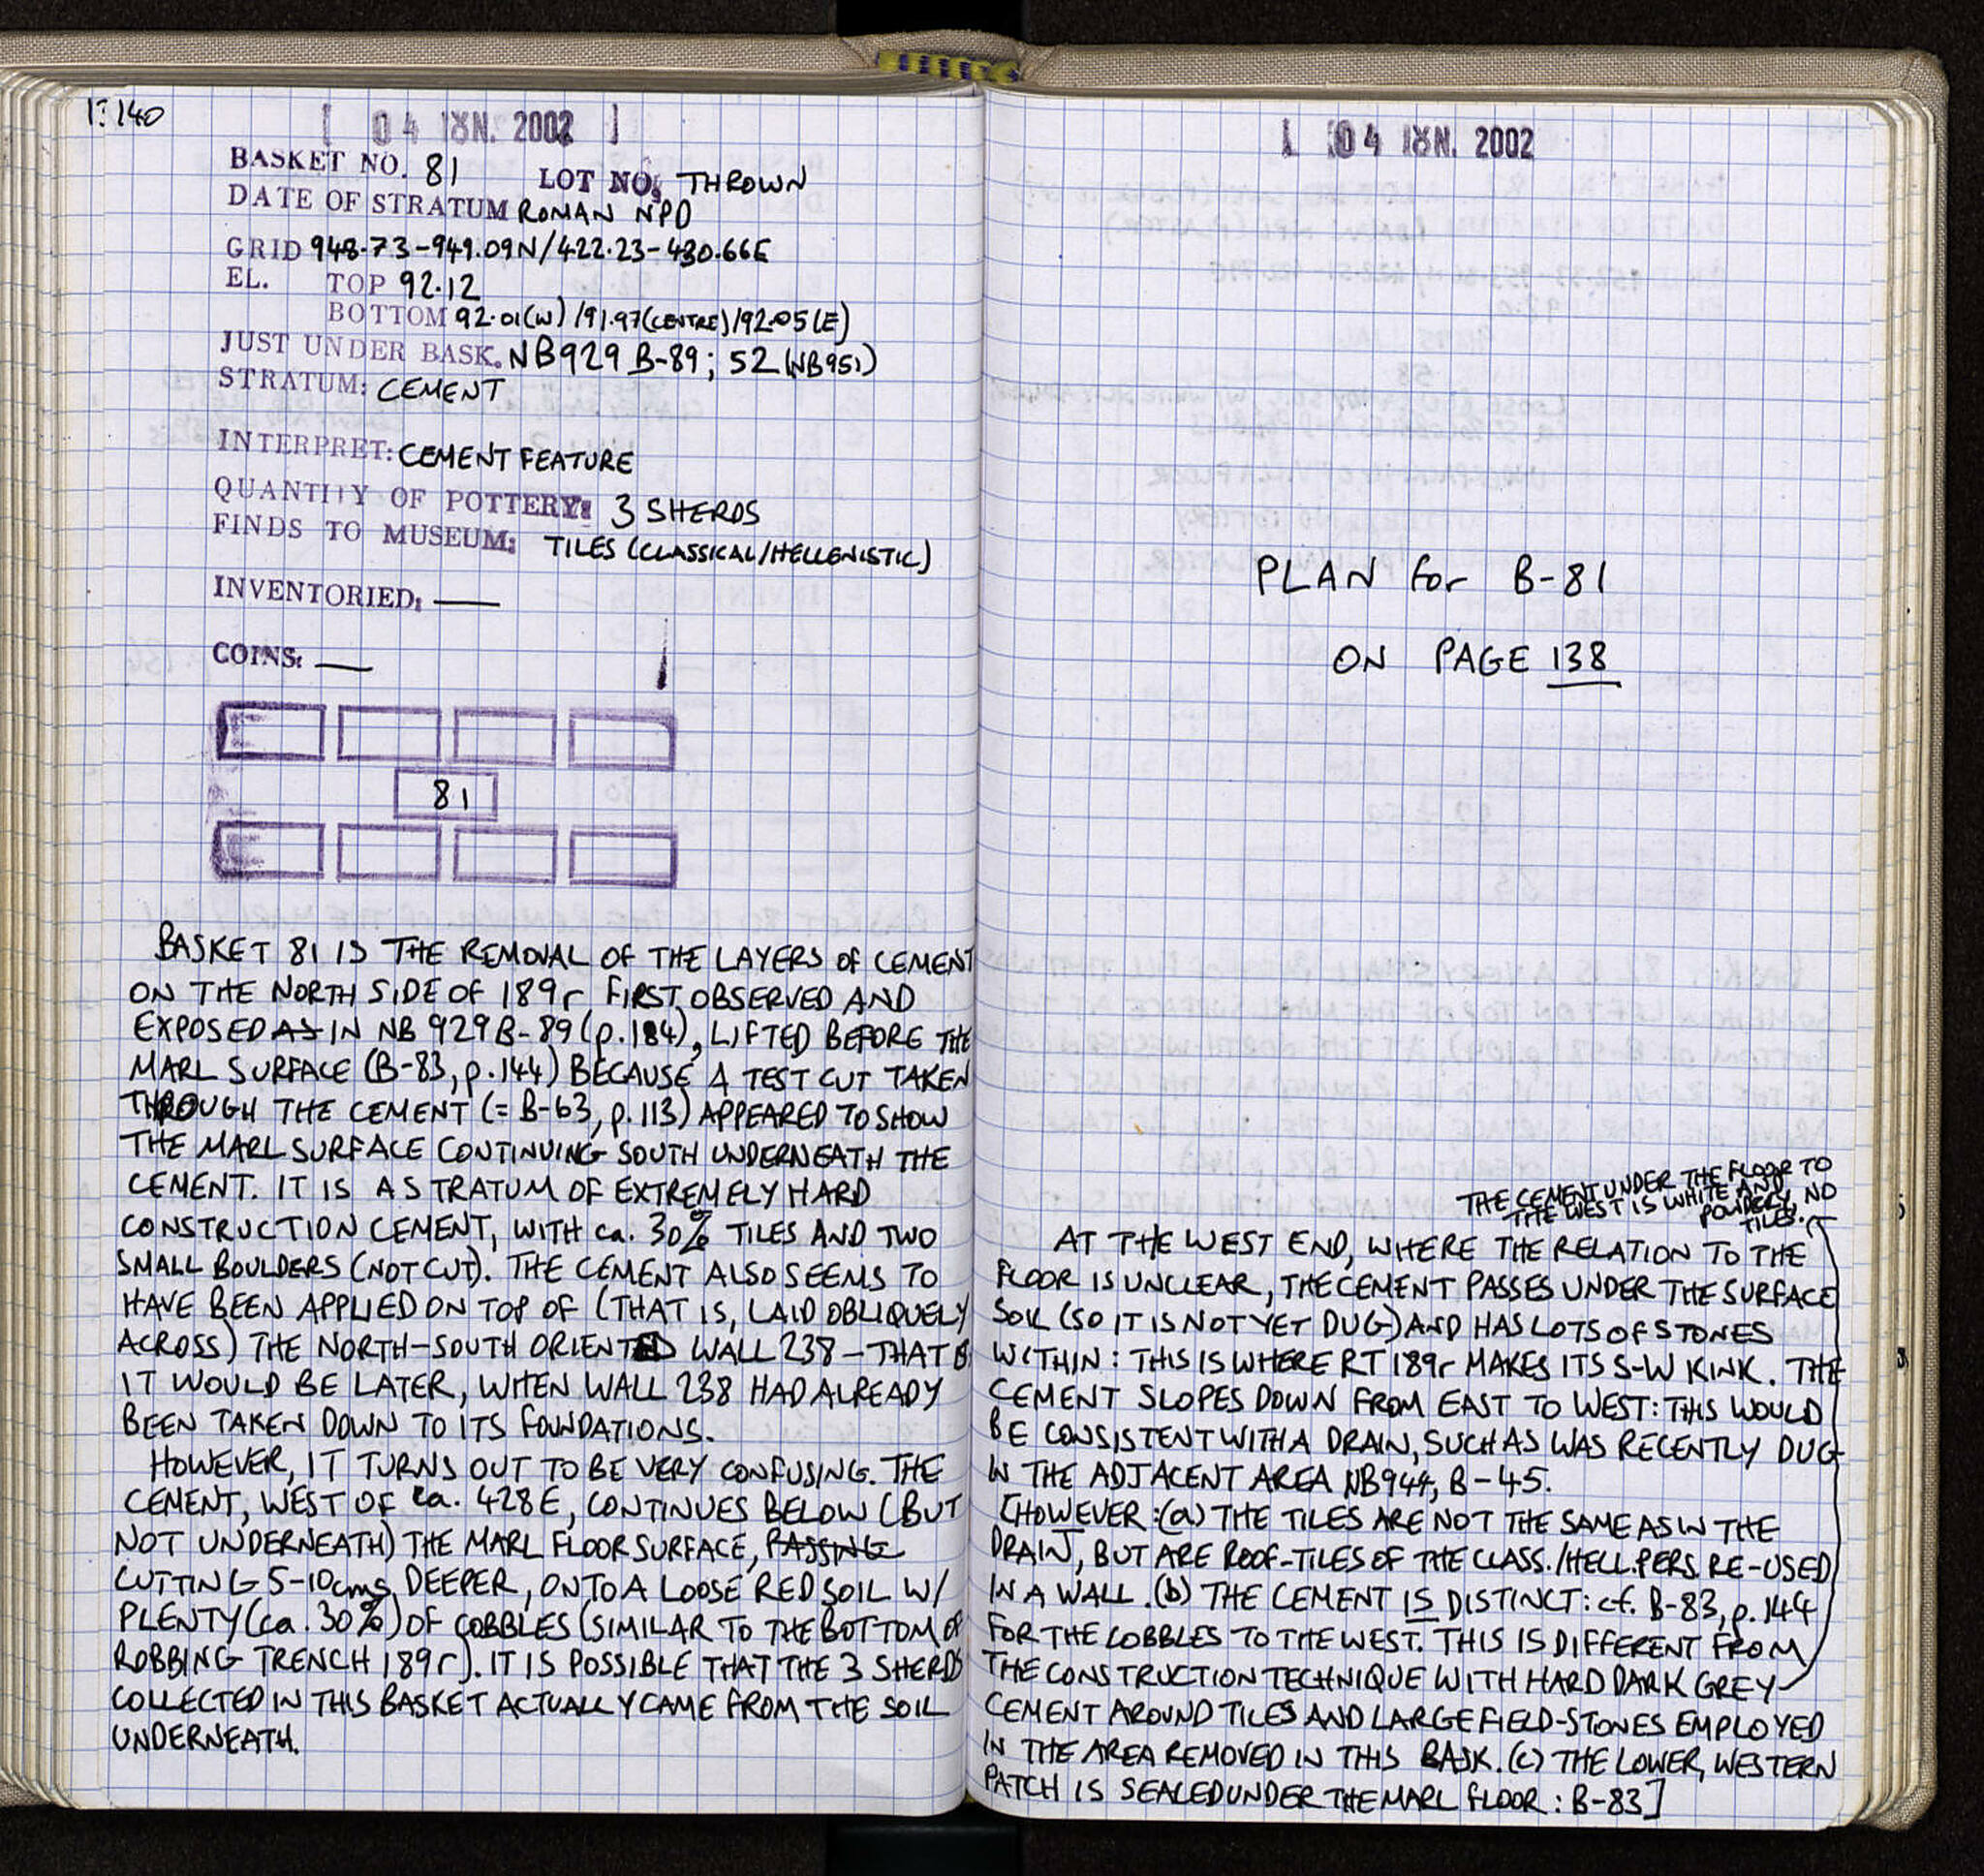 140
[ 04 IUN. 2002 ]
BASKET NO. 81 LOT NO. THROWN
DATE OF STRATUM ROMAN NPD
GRID 948.73-949.09N/422.23-430.66E
EL. TOP 92.12
BOTTOM 92.01(W)/91.97(CENTRE)/92.05(E)
JUST UNDER BASK. NB929 B-89; 52 (NB951)
STRATUM: CEMENT
INTERPRET: CEMENT FEATURE
QUANTITY OF POTTERY: 3 SHERDS
FINDS TO MUSEUM: TILES (CLASSICAL/HELLENISTIC)
INVENTORIED: —
COINS: —
81
BASKET 81 IS THE REMOVAL OF THE LAYERS OF CEMENT
ON THE NORTH SIDE OF 189r FIRST OBSERVED AND
EXPOSED AS IN NB 929 B-89 (p.184), LIFTED BEFORE THE
MARL SURFACE (B-83, p.144) BECAUSE A TEST CUT TAKEN
THROUGH THE CEMENT (= B-63, p.113) APPEARED TO SHOW
THE MARL SURFACE CONTINUING SOUTH UNDERNEATH THE
CEMENT. IT IS A STRATUM OF EXTREMELY HARD
CONSTRUCTION CEMENT, WITH ca. 30% TILES AND TWO
SMALL BOULDERS (NOT CUT). THE CEMENT ALSO SEEMS TO
HAVE BEEN APPLIED ON TOP OF (THAT IS, LAID OBLIQUELY
ACROSS) THE NORTH-SOUTH ORIENTED WALL 238 - THAT IS
IT WOULD BE LATER, WHEN WALL 238 HAD ALREADY
BEEN TAKEN DOWN TO ITS FOUNDATIONS.
HOWEVER, IT TURNS OUT TO BE VERY CONFUSING. THE
CEMENT, WEST OF ca. 428E, CONTINUES BELOW (BUT
NOT UNDERNEATH) THE MARL FLOOR SURFACE, PASSING
CUTTING 5-10cms DEEPER, ONTO A LOOSE RED SOIL W/
PLENTY (ca. 30%) OF COBBLES (SIMILAR TO THE BOTTOM OF
ROBBING TRENCH 189r). IT IS POSSIBLE THAT THE 3 SHERDS
COLLECTED IN THIS BASKET ACTUALLY CAME FROM THE SOIL
UNDERNEATH.
[ 04 IUN. 2002
PLAN for B-81
ON PAGE 138
THE CEMENT UNDER THE FLOOR TO
THE WEST IS WHITE AND
POWDERY, NO
TILES.
AT THE WEST END, WHERE THE RELATION TO THE
FLOOR IS UNCLEAR, THE CEMENT PASSES UNDER THE SURFACE
SOIL (SO IT IS NOT YET DUG) AND HAS LOTS OF STONES
WITHIN: THIS IS WHERE RT 189r MAKES ITS S-W KINK. THE
CEMENT SLOPES DOWN FROM EAST TO WEST: THIS WOULD
BE CONSISTENT WITH A DRAIN, SUCH AS WAS RECENTLY DUG
IN THE ADJACENT AREA NB944, B-45.
[HOWEVER: (a) THE TILES ARE NOT THE SAME AS IN THE
DRAIN, BUT ARE ROOF-TILES OF THE CLASS./HELL. PERS. RE-USED
IN A WALL. (b) THE CEMENT IS DISTINCT: cf. B-83, p.144
FOR THE COBBLES TO THE WEST. THIS IS DIFFERENT FROM
THE CONSTRUCTION TECHNIQUE WITH HARD DARK GREY
CEMENT AROUND TILES AND LARGE FIELD-STONES EMPLOYED
IN THE AREA REMOVED IN THIS BASK. (c) THE LOWER, WESTERN
PATCH IS SEALED UNDER THE MARL FLOOR: B-83]